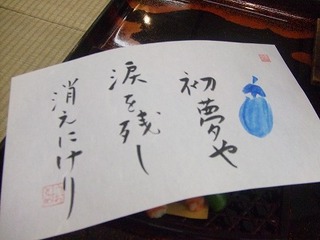 初夢や
涙を残し
消えにけり